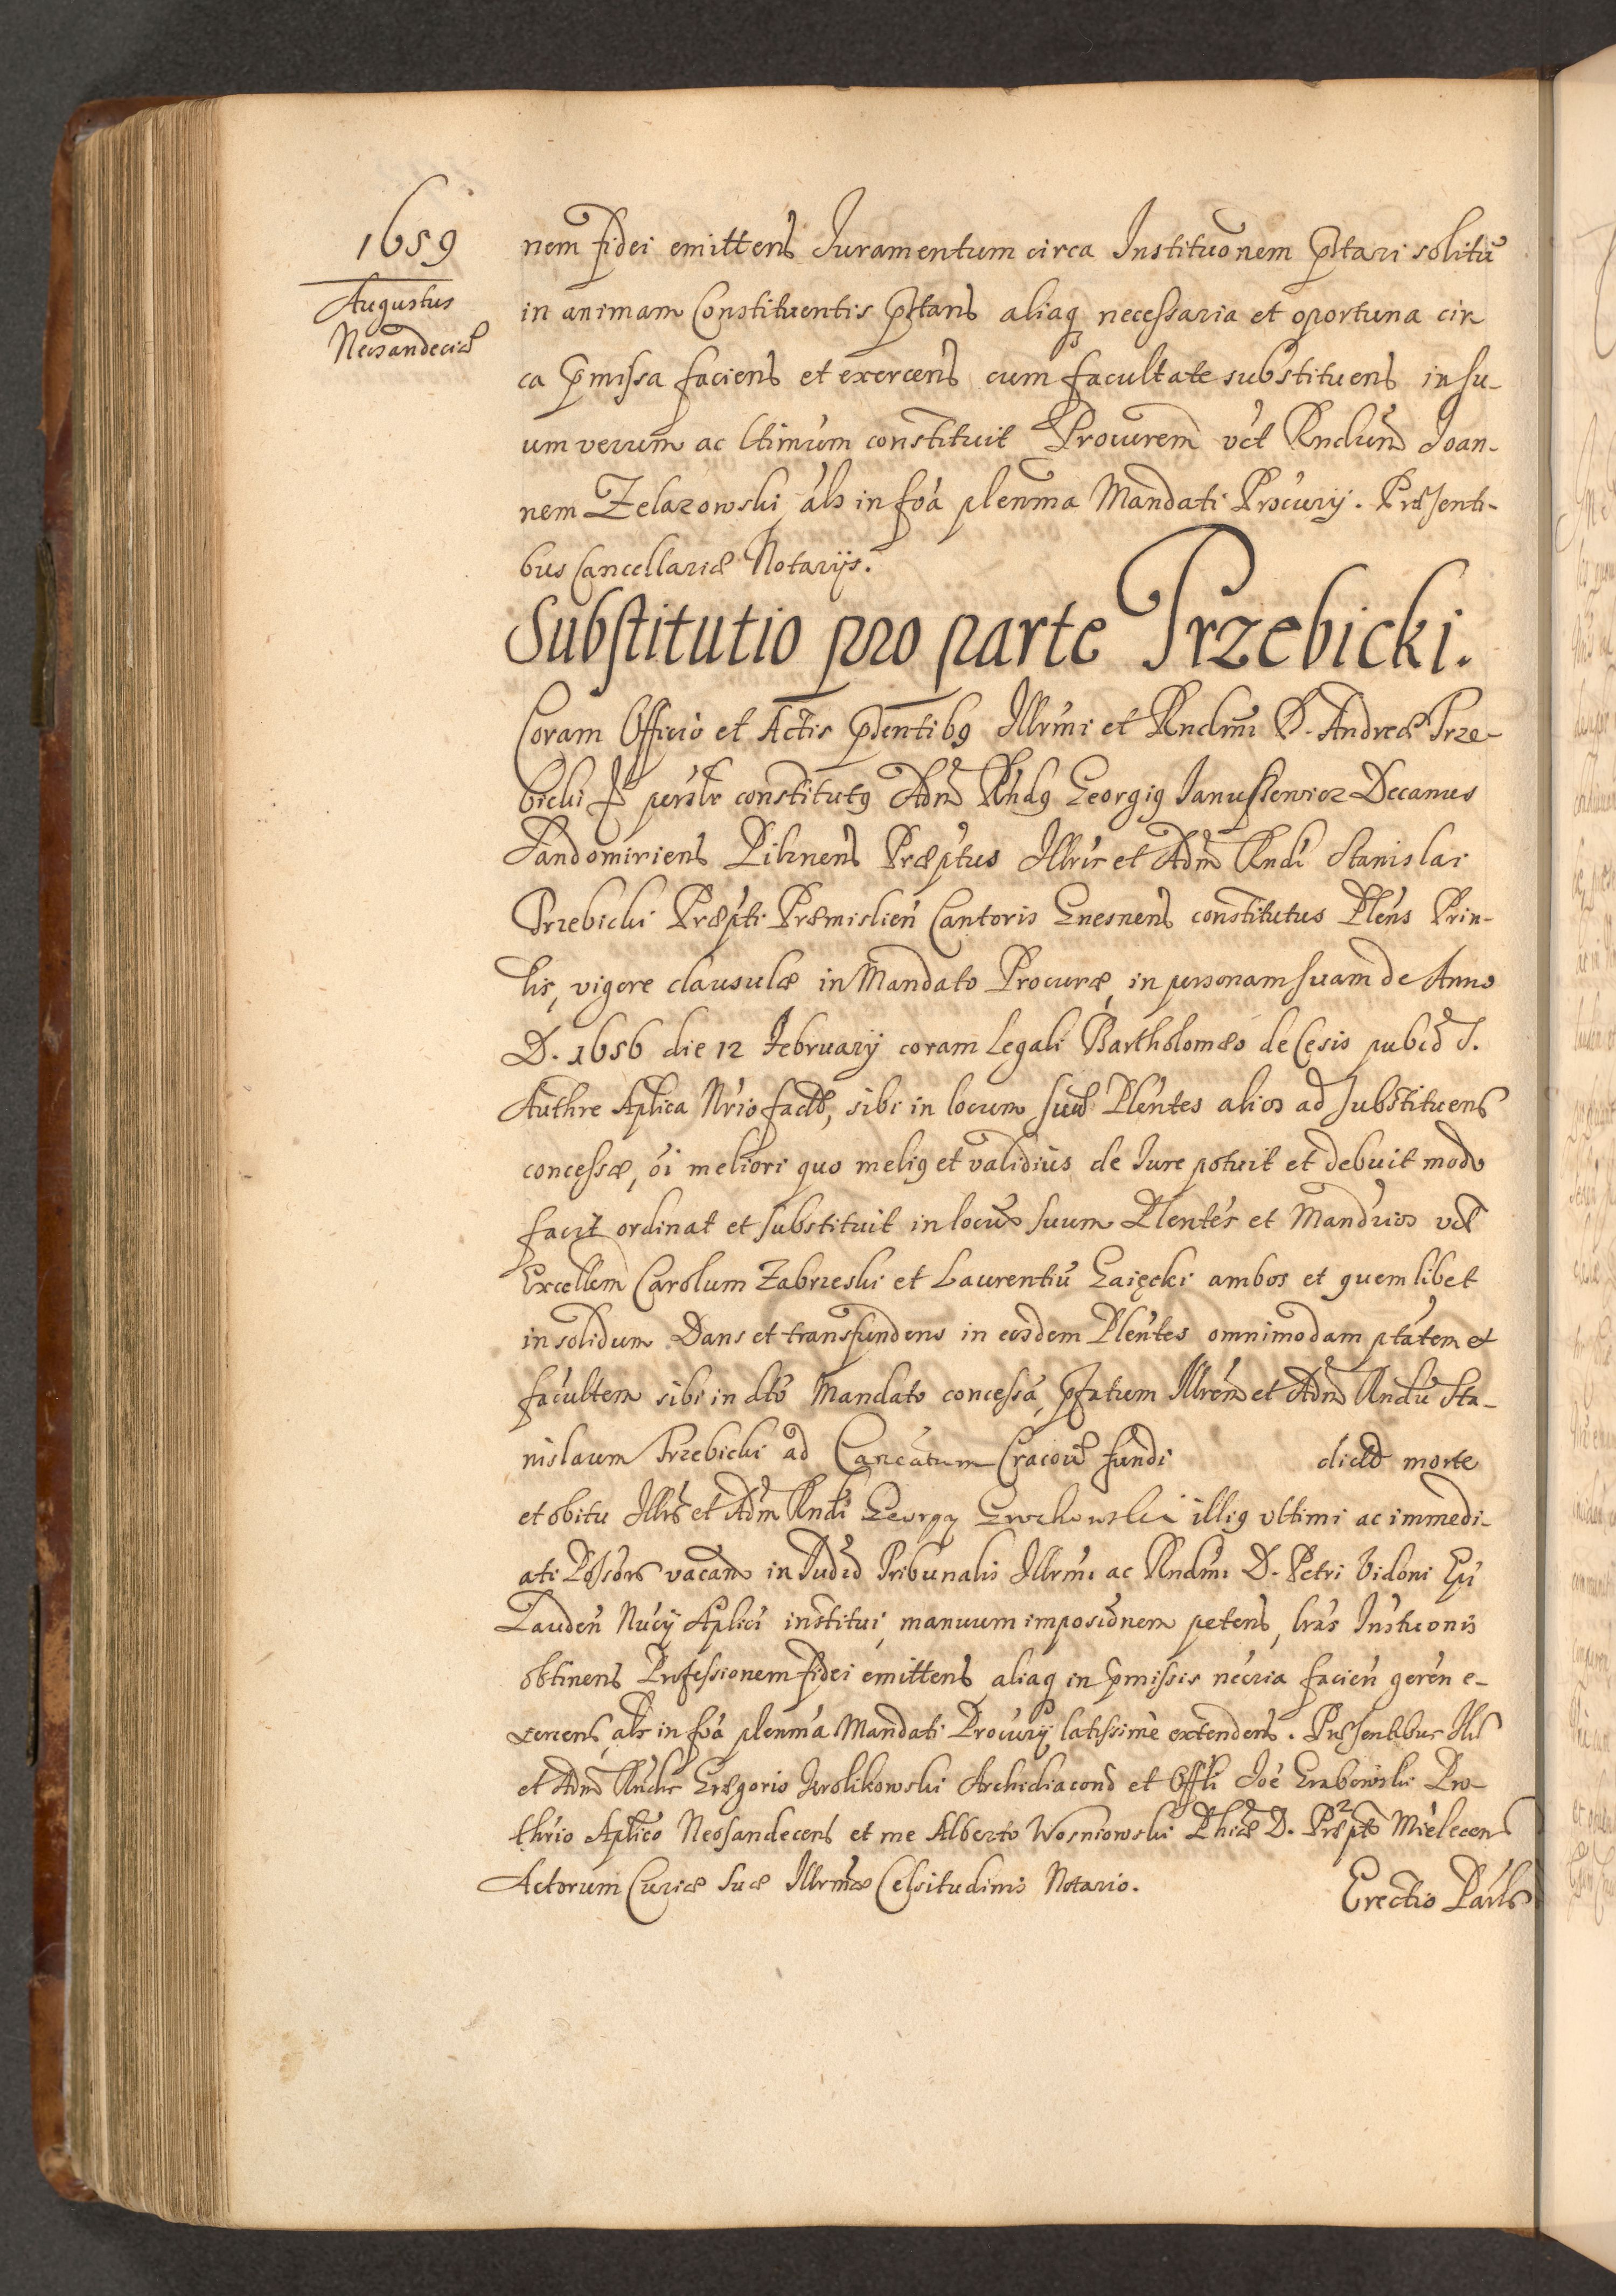 1659
Augustus
Neosandeciæ
nem fidei emittens Iuramentum circa Instituonem pstari solitũ
in animam Constituentis pstans aliaq necessaria et oportuna cir
ca pmissa faciens et exercens cum facultate substituens in su-
um verum ac ltimum constituit Procurem vct Rndum Joan-
nem Zelazowski als in foa plenma Mandati Procurij. Præsenti-
bus Cancellariæ Notarijs.
Substitutio pro parte Trzebicki.
Coram Officio et Actis pdentibq Illrmi et Rndmi D. Andreæ Trze-
bicki psnlr constitutq Adm Rndq Georgiq Januszewicz Decanus
Sandomiriens Pilznens Præptus Illris et Adm Rndi Stanislai
Trzebicki Præpti Præmislien Cantoris Gnesnens constitutus Plens Prin-
lis, vigore clausulæ in Mandato Procuræ, in personam suam de Anno
D. 1656 die 12 February coram Legali Bartholomæo de Cesis pubco S.
Authre Aplica Nrio facto, sibi in locum suũ Plentes alios ad substituens
concessæ, oi meliori quo meliq et validius de Iure potuit et debuit modo
facit ordinat et substituit in locum suum Plentes et Mandrios vct
Excellem Carolum Zabrzeski et Laurentiũ Gaięcki ambos et quemlibet
in solidum. Dans et transfundens in eosdem Plentes omnimodam ptatem et
facultem sibi in dto Mandato concessa, pfatum Illrem et Adm Rndũ Sta-
nislaum Trzebicki ad Cancatum Cracov fundi dicto morte
et obitu Illris et Adm Rndi Georgy Grochowski illiq ultimi ac immedi-
ati Possors vacan in Judo Tribunalis Illrmi ac Rndmi D. Petri Vidoni Epi
Lauden Nucij Aplici institui, manuum imposionem petens, lras Instuonis
obtinens Professionem fidei emittens aliaq in pmissis necria facien geren e-
xercens, als in foa plenma Mandati Procurij latissime extendens. Præsentibus Ill
et Adm Rndis Gregorio Krolikowski Archidiacono et Offli Joe Grabowski Pro-
thrio Aplico Neosandecens et me Alberto Wosniowski Phiæ D. Præpto Mielecen
Actorum Curiæ suæ Illrmæ Celsitudinis Notario.
Erectio Parlis